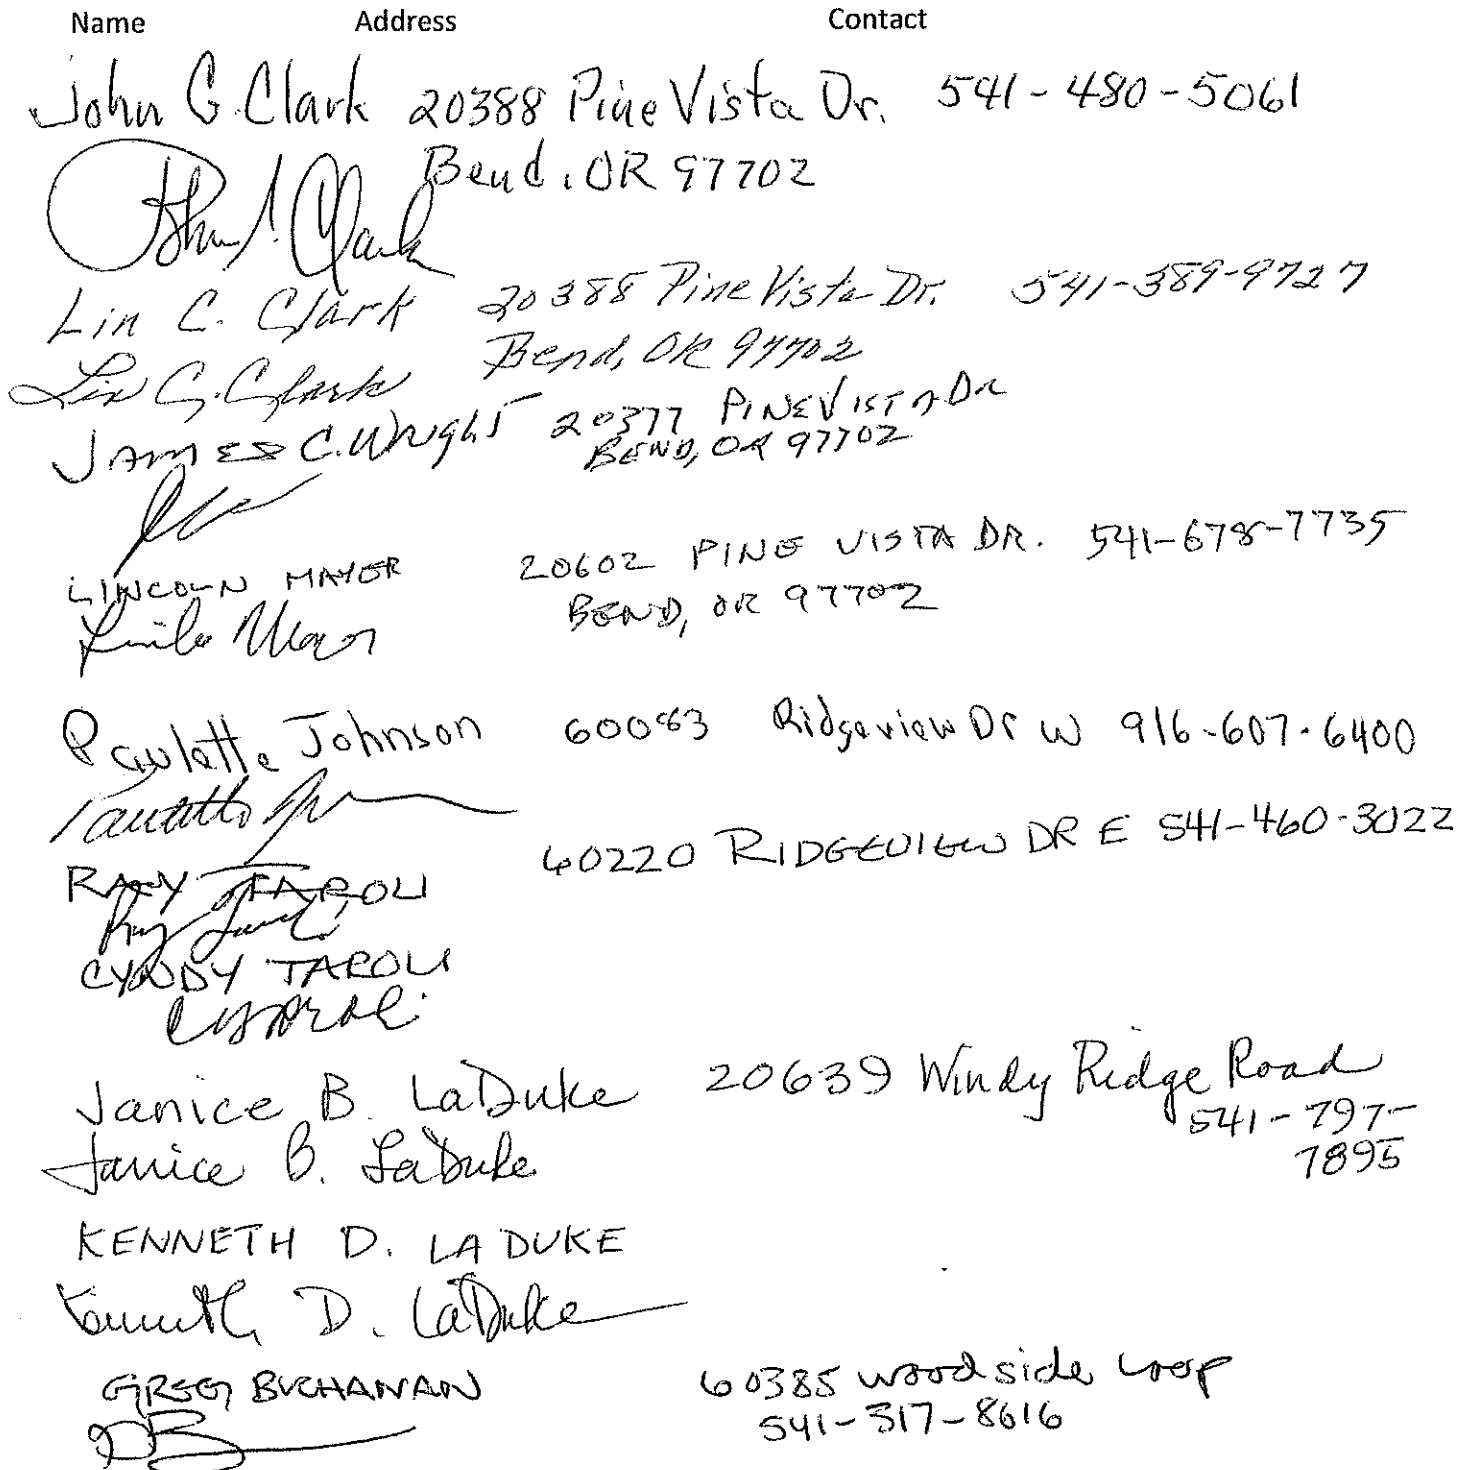 Name Address Contact
John G. Clark 20388 Pine Vista Dr. 541-480-5061
Bend, OR 97702
John G. Clark
Lin C. Clark 20388 Pine Vista Dr. 541-389-9727
Bend, OR 97702
Lin C. Clark
JAMES C. Wright 20377 PINE VISTA DR
BEND, OR 97702
LINCOLN MAYER 20602 PINE VISTA DR. 541-678-7735
BEND, OR 97702
Paulette Johnson 60083 Ridgeview Dr W 916-607-6400
RAY TAROLI 60220 RIDGEVIEW DR E 541-460-3022
Ray Taroli
CYNDY TAROLI
Janice B. LaDuke 20639 Windy Ridge Road
541-797-
7895
Janice B. LaDuke
KENNETH D. LA DUKE
Kenneth D. LaDuke
GREG BUCHANAN 60385 woodside Loop
541-317-8616